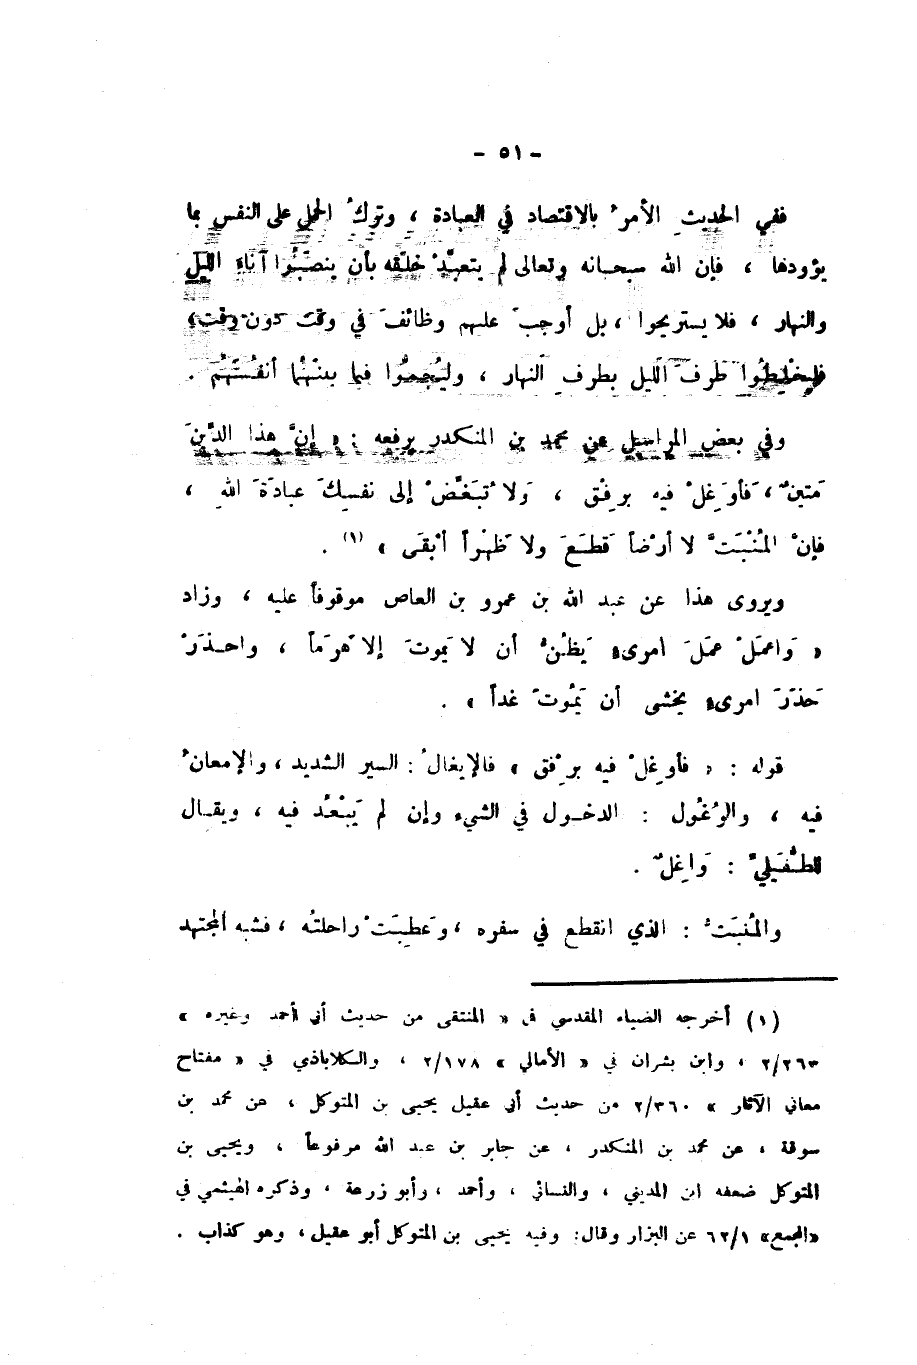 - ٥١ -
ففي الحديثِ الأمرُ بالاقتصاد في العبادة ، وتركُ الحمل على النفس بما
يؤودها ، فإن الله سبحانه وتعالى لم يتعبَّدْ خلقه بأن ينصَبُوا آناءَ الليل
والنهار ، فلا يستريحوا ، بل أوجبَ عليهم وظائفَ في وقت دون وقت،
فليخلِطُوا طرفَ الليل بطرفِ النهار ، وليُجِمُّوا فيما بينهُما أنفُسَهُم .
وفي بعض المراسيل عن محمد بن المنكدر يرفعه : « إنَّ هذا الدِّينَ
مَتينٌ ، فَأوْغِلْ فيه برِفْق ، وَلا تُبَغِّضْ إلى نفسِكَ عبادَةَ اللهِ ،
فإنْ المُنْبَتَّ لا أرْضاً قَطَعَ ولا ظَهْراً أبْقَى » (١) .
ويروى هذا عن عبد الله بن عمرو بن العاص موقوفاً عليه ، وزاد
« وَاعمَلْ عمَلَ امرىءٍ يَظُنُّ أن لا يَموتَ إلا هَرَماً ، واحذَرْ
حَذَرَ امرىءٍ يخشى أن يَمُوتَ غداً » .
قوله : « فأوغِلْ فيه برِفْق » فالإيغالُ : السير الشديد ، والإمعانُ
فيه ، والوُغُول : الدخول في الشيء وإن لم يَبْعُد فيه ، ويقال
للطُّفَيليِّ : وَاغِلٌ .
والمُنبَتُّ : الذي انقطع في سفره ، وعَطِبَتْ راحلتُه ، فشبه المجتهد
(١) أخرجه الضياء المقدسي في « المنتقى من حديث أبي أحمد وغيره »
٢/٢٦٣ ، وابن بشران في « الأمالي » ٢/١٧٨ ، والكلاباذي في « مفتاح
معاني الآثار » ٢/٣٦٠ من حديث أبي عقيل يحيى بن المتوكل ، عن محمد بن
سوقة ، عن محمد بن المنكدر ، عن جابر بن عبد الله مرفوعاً ، ويحيى بن
المتوكل ضعفه ابن المديني ، والنسائي ، وأحمد ، وأبو زرعة ، وذكره الهيثمي في
«المجمع» ٦٢/١ عن البزار وقال: وفيه يحيى بن المتوكل أبو عقيل، وهو كذاب .